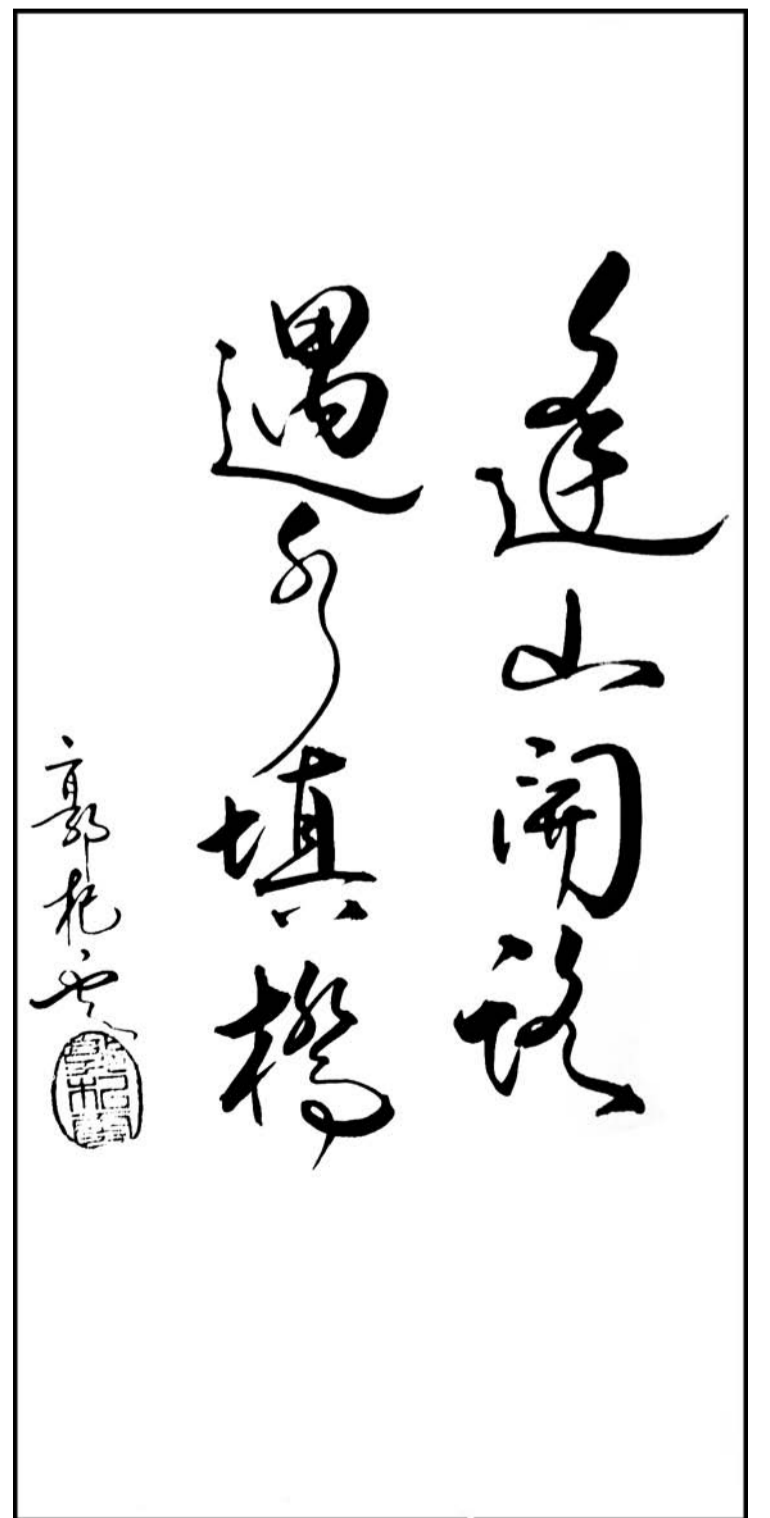 逢山開路
遇水填橋
郭杞雲